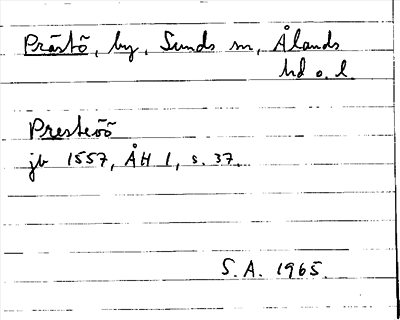 Prästö, by, Sunds sn, Ålands
hd o. l.
Presteöö
jb 1557, ÅH 1, s. 37.
S.A. 1965.